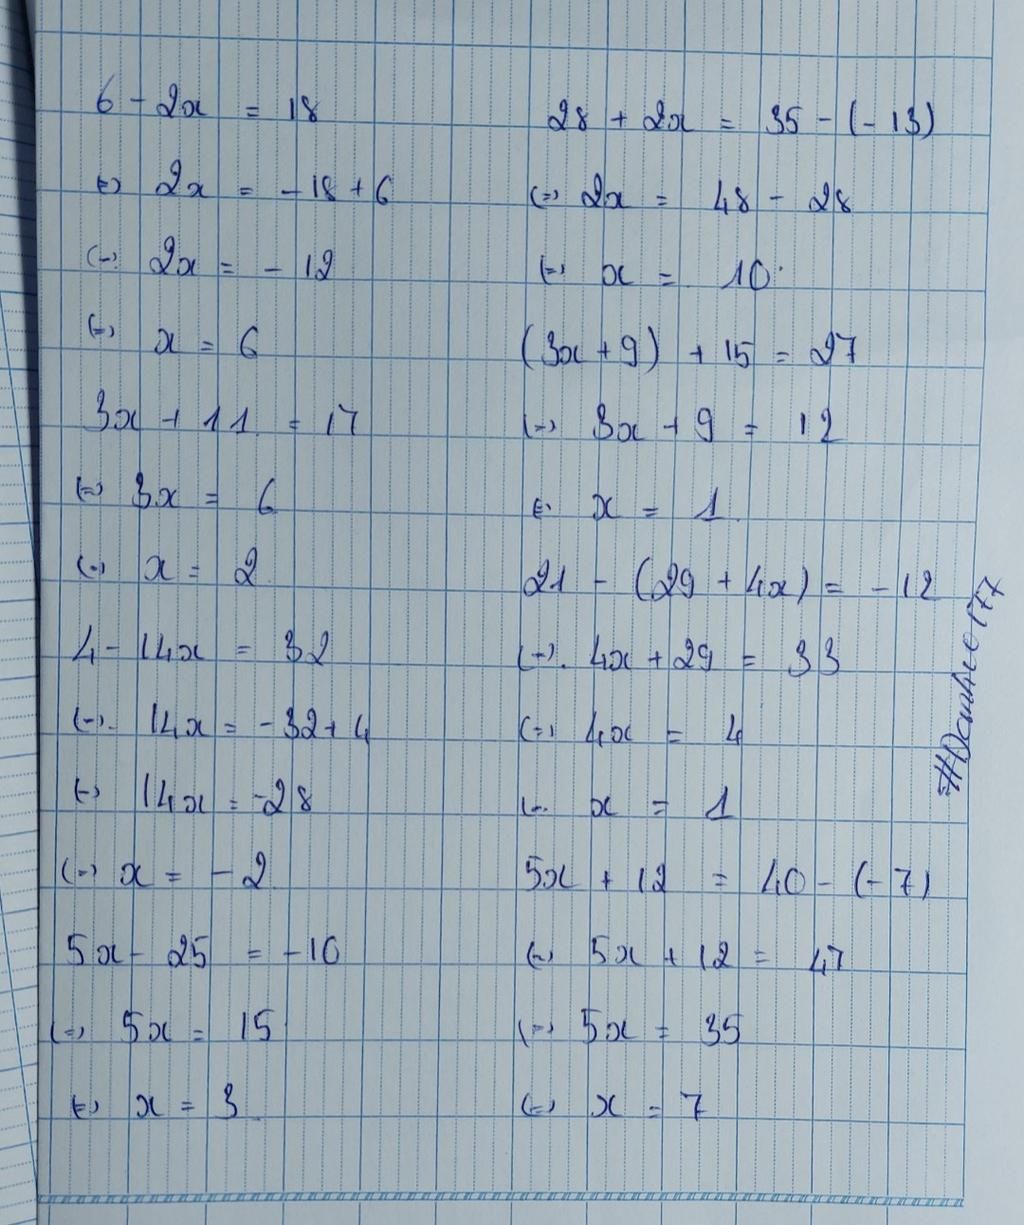 6 - 2x = 18
(=) 2x = -18 + 6
(=) 2x = -12
(=) x = 6
3x + 11 = 17
(=) 3x = 6
(=) x = 2
4 - 14x = 32
(=) 14x = -32 + 4
(=) 14x = -28
(=) x = -2
5x - 25 = -10
(=) 5x = 15
(=) x = 3
28 + 2x = 35 - (-13)
(=) 2x = 48 - 28
(=) x = 10
(3x + 9) + 15 = 27
(=) 3x + 9 = 12
(=) x = 1
21 - (29 + 4x) = -12
(=) 4x + 29 = 33
(=) 4x = 4
(=) x = 1
5x + 12 = 40 - (-7)
(=) 5x + 12 = 47
(=) 5x = 35
(=) x = 7